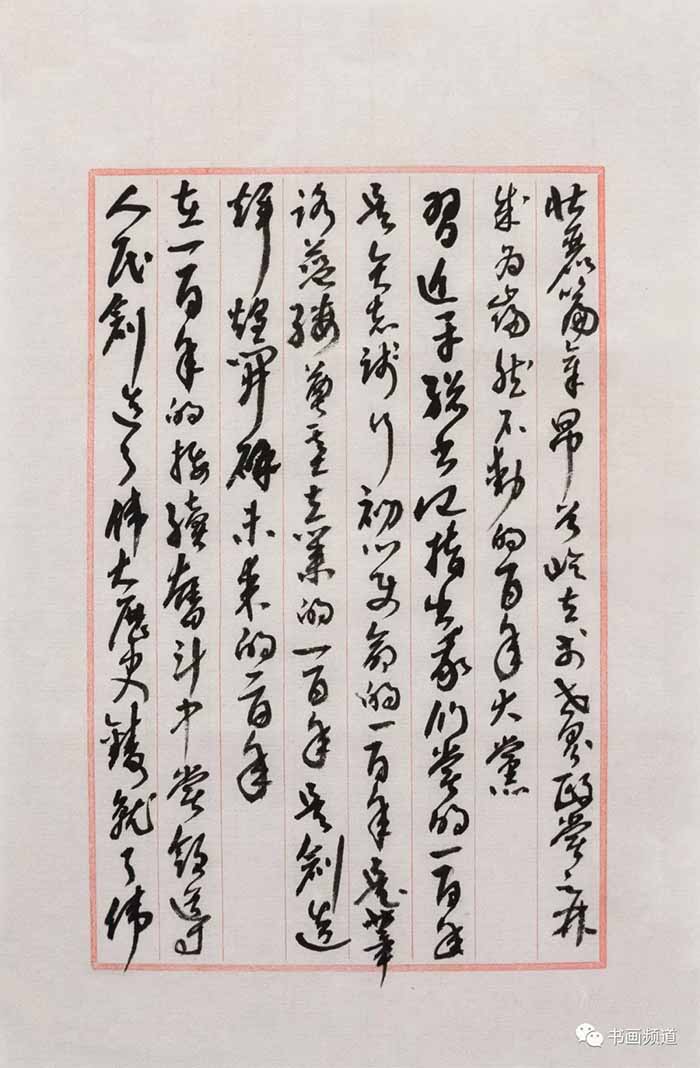 壮丽篇章昂首屹立于世界政党之林
成为岿然不动的百年大党
习近平总书记指出我们党的一百年
是矢志践行初心使命的一百年是筚
路蓝缕奠基立业的一百年是创造
辉煌开辟未来的一百年
在一百年的接续奋斗中党领导
人民创造了伟大历史铸就了伟
书画频道